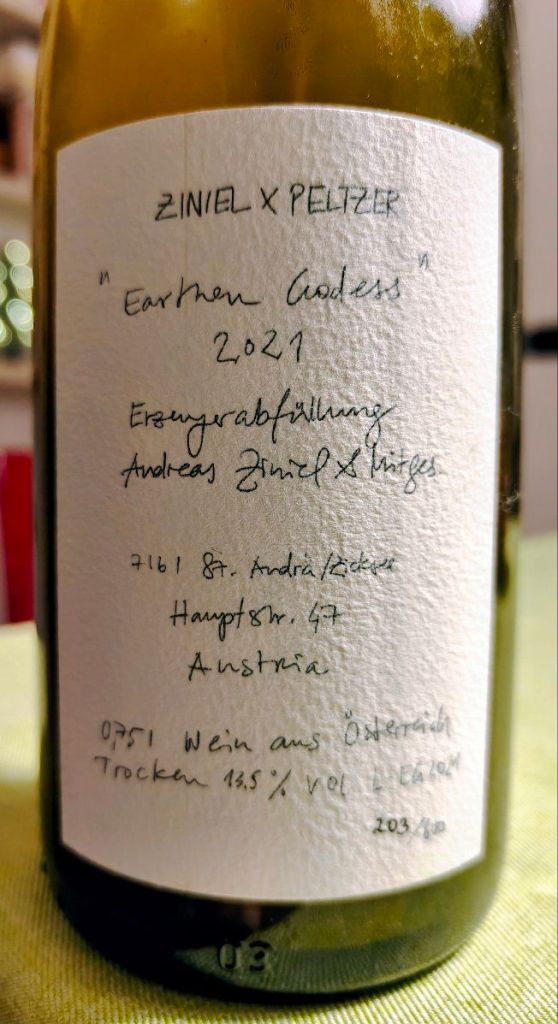 ZINIEL X PELTZER
"Earthen Godess"
2021
Erzeugerabfüllung
Andreas Ziniel & Mitges.
7161 St. Andrä/Zicksee
Hauptstr. 47
Austria
0,75 l Wein aus Österreich
Trocken 13.5 % VOL L
203/800
03